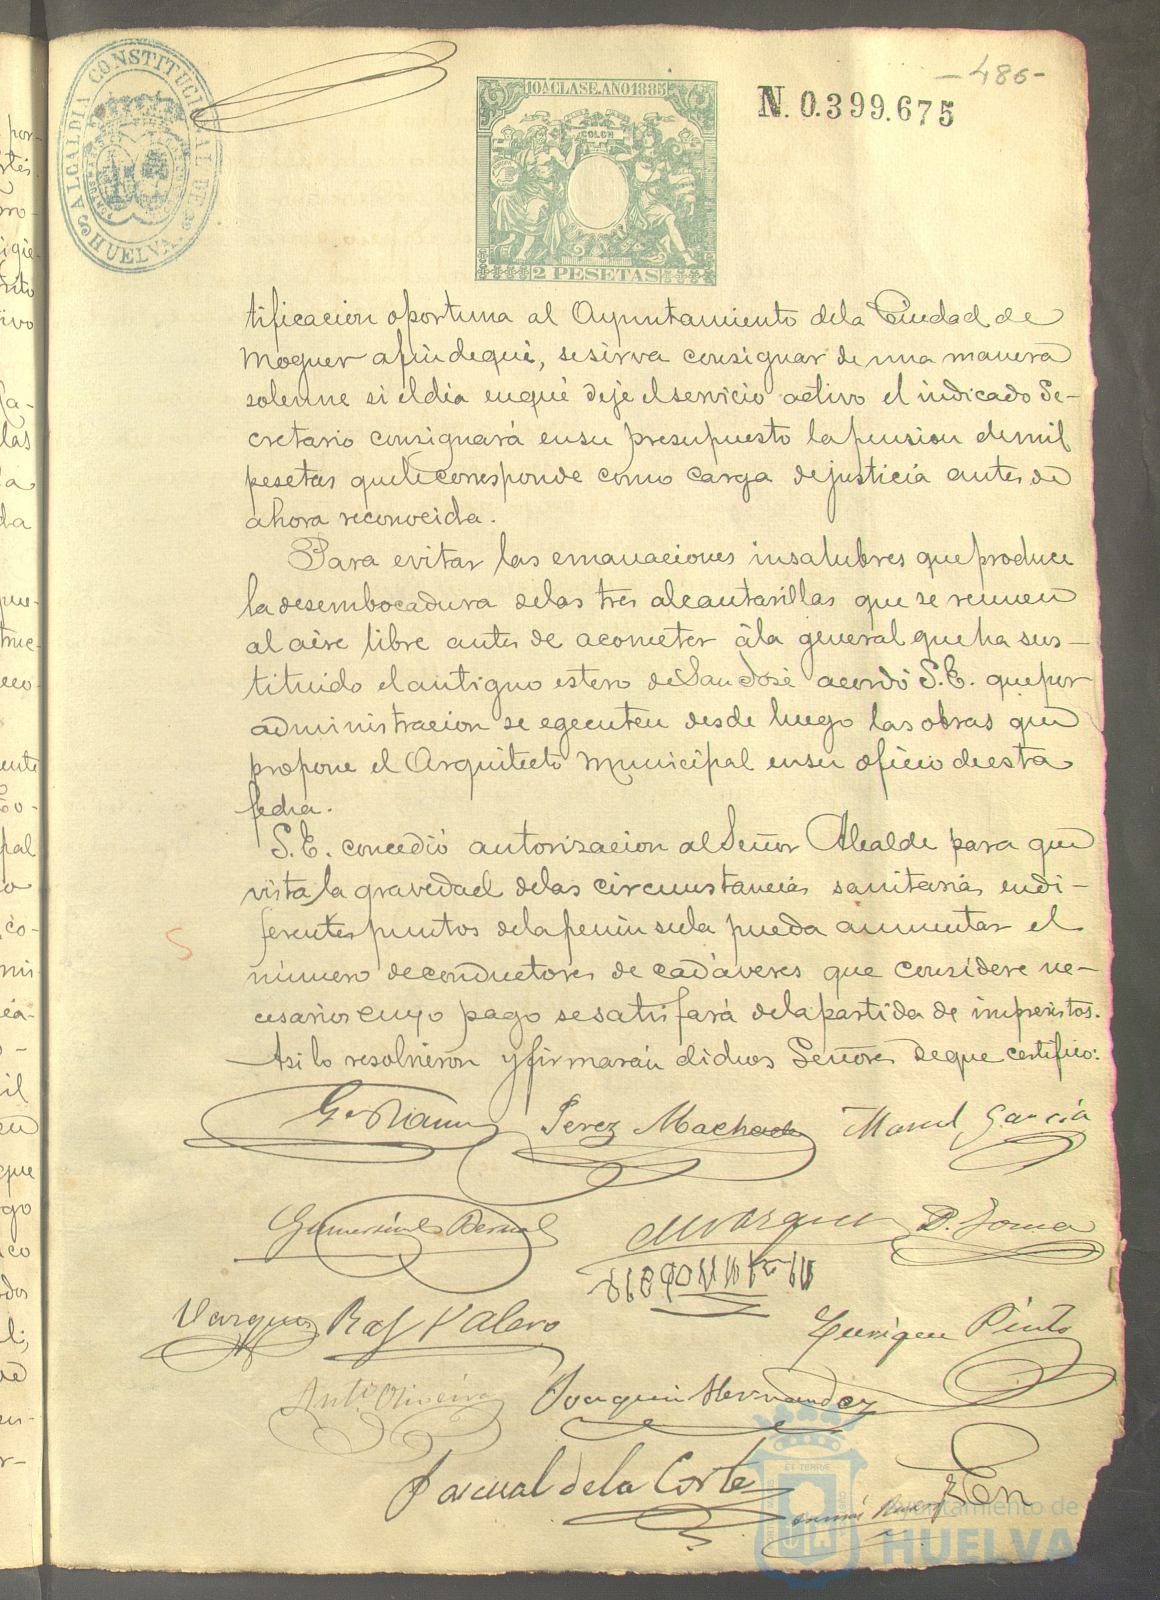 ALCALDIA CONSTITUCIONAL DE
HUELVA
- 486 -
10A CLASE. AÑO 1885
N. 0.399.675
2 PESETAS
tificacion oportuna al Ayuntamiento dela Ciudad de
Moguer afin deque, sesirva consignar de una manera
solenne si el dia enqué deje el servicio activo el indicado Se-
cretario consignará ensu presupuesto la pension demil
pesetas quele corresponde como carga dejusticia antes de
ahora reconocida.
Para evitar las emanaciones insalubres que produce
la desembocadura delas tres alcantarillas que se reunen
al aire libre antes de acometer ála general que ha sus-
tituido el antiguo estero de San José acordó S. E. quepor
administracion se egecuten desde luego las obras que
propone el Arquitecto Municipal ensu oficio deesta
fecha.
S. E. concedió autorizacion al Señor Alcalde para que
vista la gravedad delas circunstancias sanitarias endi-
ferentes puntos dela peninsula pueda aumentar el
número de conductores de cadáveres que considere ne-
cesarios cuyo pago sesatisfará dela partida de imprevistos.
Asi lo resolvieron y firmarán dichos Señores deque certifico:
Perez Machado Manuel Garcia
Gumersindo Bernal
Vazquez Raf Valero Enrique Pinto
Ant.º Oliveira Joaquin Hernandez
Pascual dela Corte
Ayuntamiento de
HUELVA